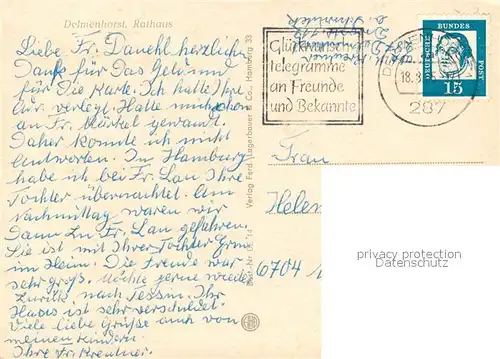 Delmenhorst, Rathaus
Liebe Fr. Danehl herzlichen
Dank für Das Geld und
für Die Karte. Ich hatte Ihre
Adr. verlegt. Hatte mich schon
an Fr. Märkel gewandt.
Daher konnte ich nicht
antworten. In Hamburg
habe ich bei Fr. Lau Ihre
Tochter übernachtet. Am
Nachmittag waren wir
Dann zu Fr. Lau gefahren.
Sie ist mit Ihrer Tochter
im Heim. Die Freude war
sehr groß. Möchte gerne wieder
zurück nach Tessin. Ihr
Haus ist sehr verschuldet.
Viele liebe Grüße auch von
meinen Kindern.
Ihre Fr. Kreutner.
Verlag Ferd. Lagerbauer & Co., Hamburg 33
Best.-Nr.
Glückwunsch-
telegramme
an Freunde
und Bekannte
18.8.
287
DEUTSCHE BUNDESPOST
15
Frau
Helen
6704
privacy protection
Datenschutz